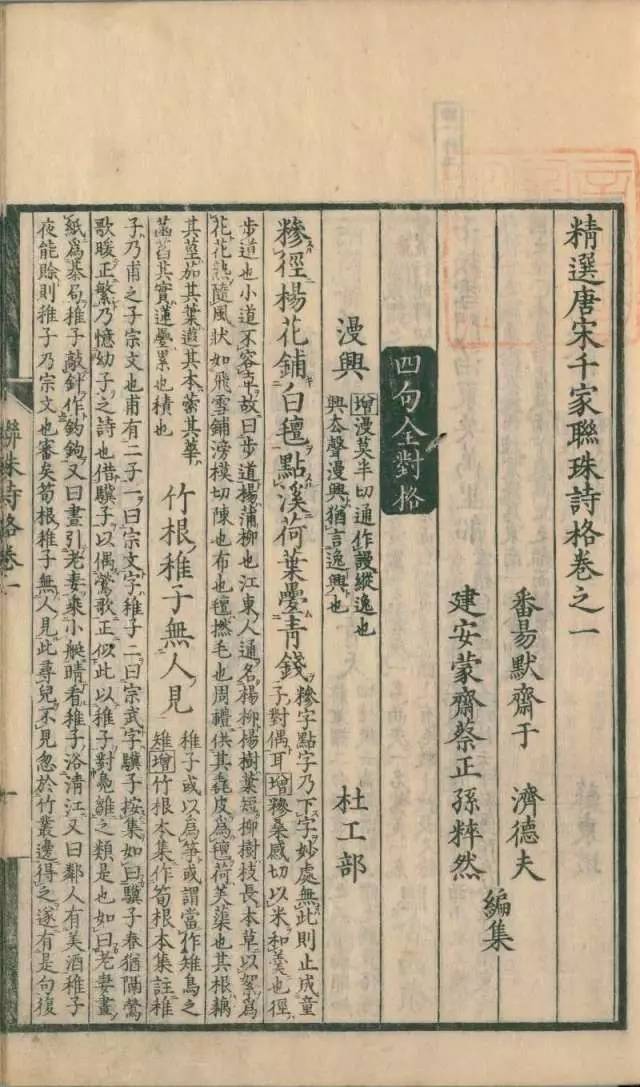 精選唐宋千家聯珠詩格卷之一
番昜默齋于 濟德夫
建安蒙齋蔡正孫粹然
編集
四句全對格
漫興
增漫莫半切通作謾縱逸也
興去聲漫興猶言逸興也
杜工部
糝徑楊花鋪白氊點溪荷葉疊青錢
糝字點字乃下字妙處無此則止成童
子對偶耳增糝桑感切以米和羹也徑
步道也小道不容車故曰步道楊蒲柳也江東人通名楊柳楊樹葉短柳樹枝長本草以絮為
花花熱隨風狀如飛雪鋪滂模切陳也布也氊撚毛也周禮供其毳皮為氊荷芙蕖也其根藕
其莖茄其葉蕸其本蔤其華
菡萏其實蓮疊累也積也
竹根稚子無人見
稚子或以為筍或謂當作雉鳥之
雉增竹根本集作筍根本集註稚
子乃甫之子宗文也甫有二子一曰宗文字稚子二曰宗武字驥子按集如曰驥子春猶隔鶯
歌暖正繁乃憶幼子之詩也借驥子以偶鶯歌正似此以稚子對鳧雛之類是也如曰老妻畫
紙為棊局稚子敲針作釣鉤又曰晝引老妻乘小艇晴看稚子浴清江又曰鄰人有美酒稚子
夜能賒則稚子乃宗文也審矣筍根稚子無人見此尋兒不見忽於竹叢邊得之遂有是句復
聯珠詩格卷一
一